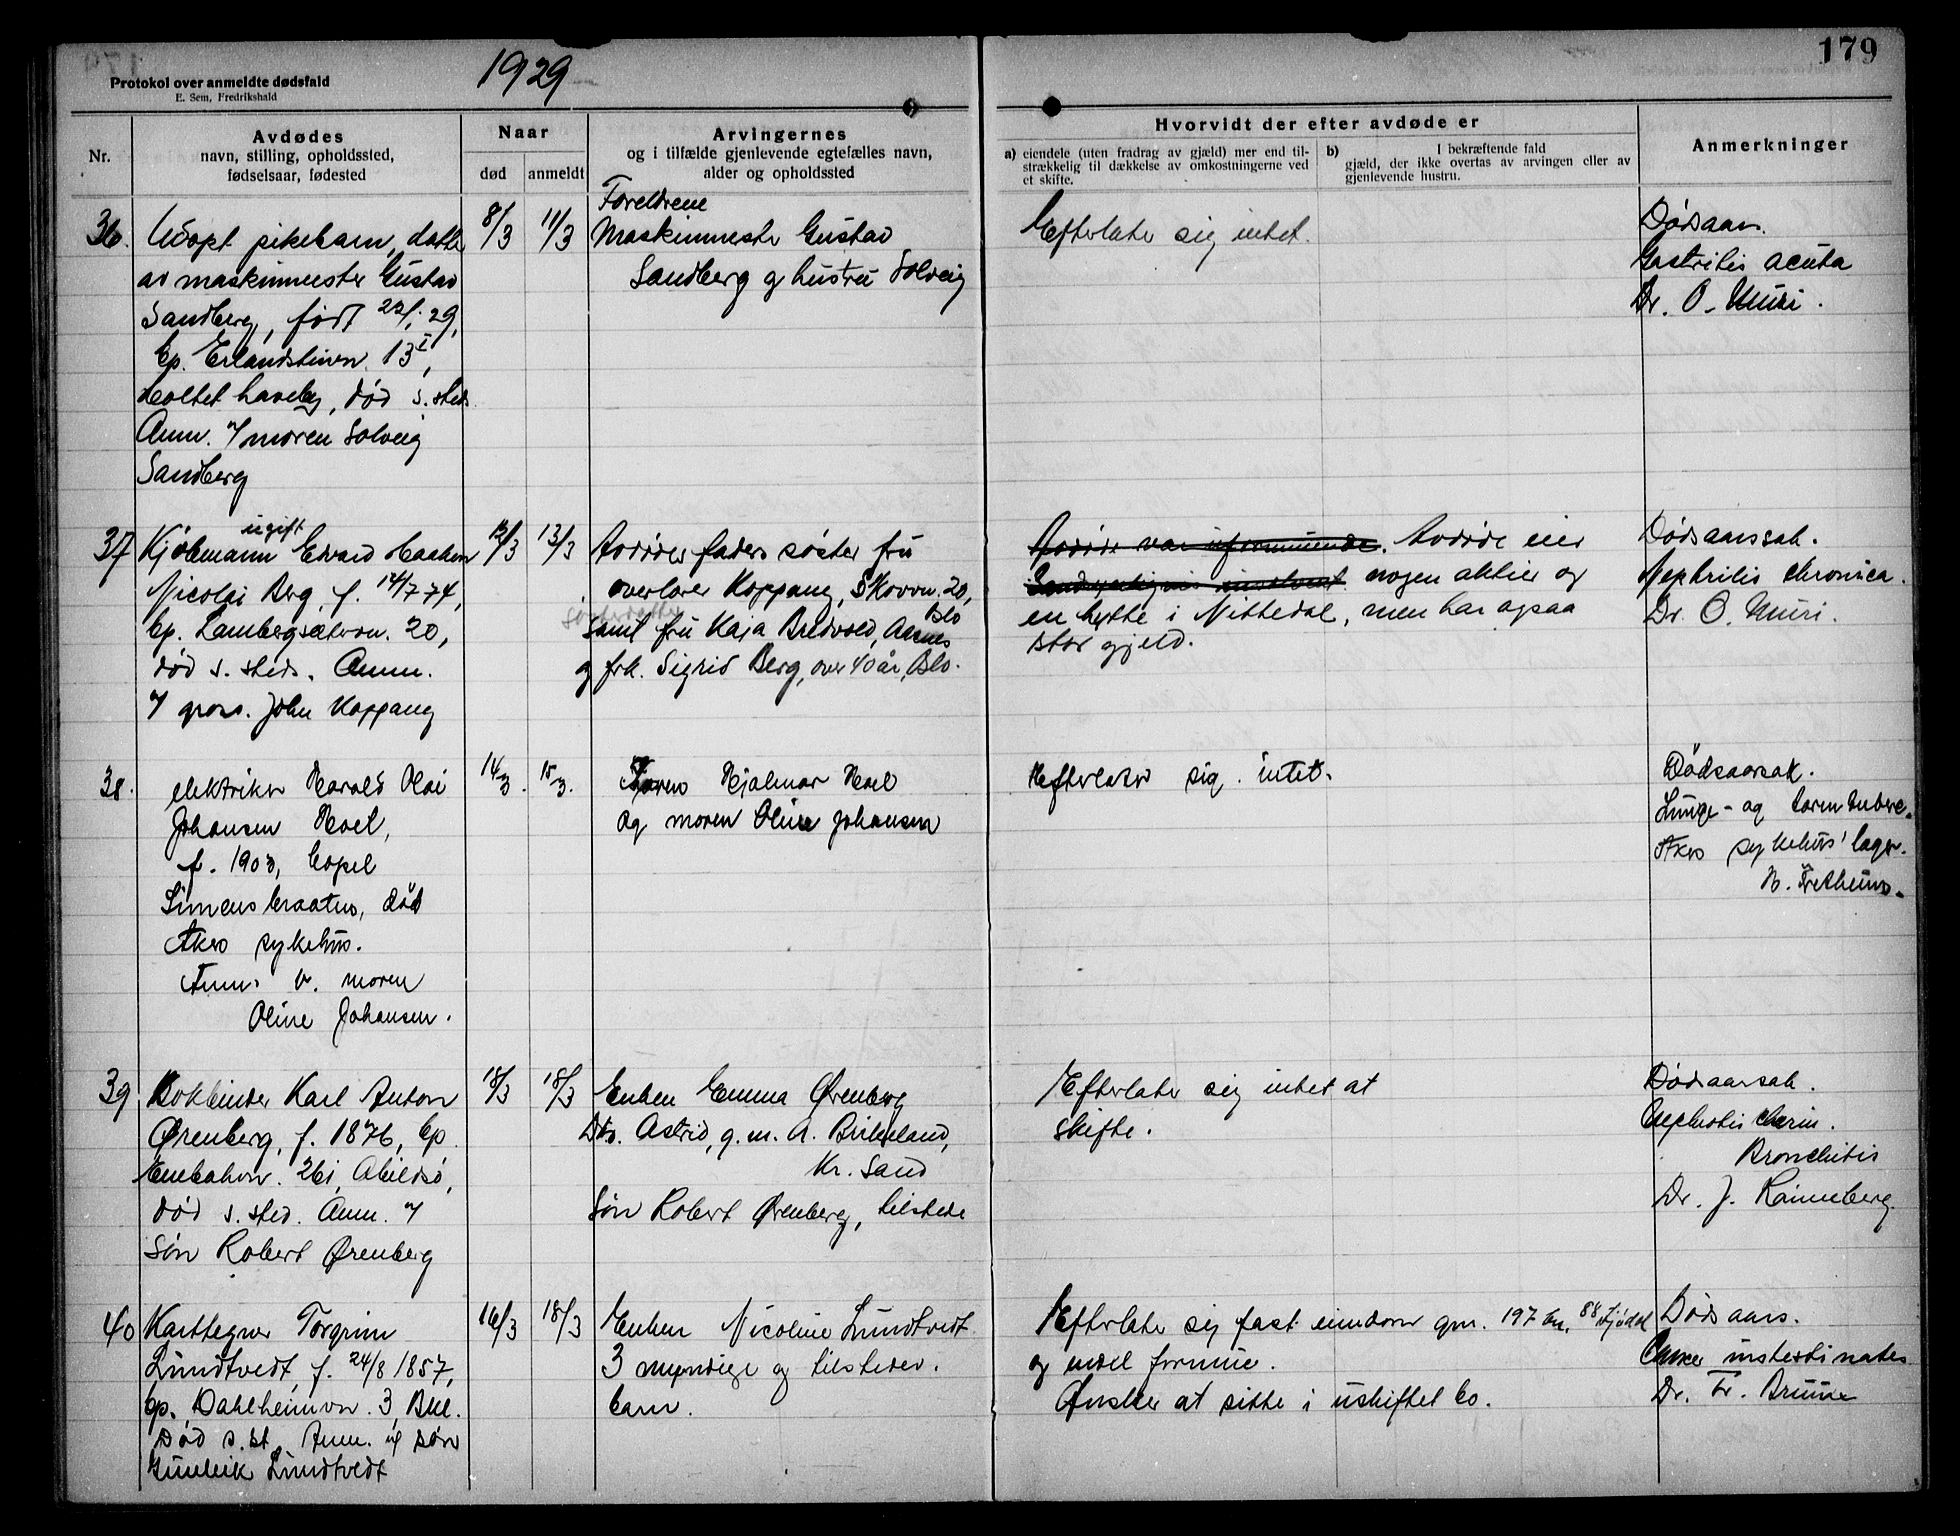 179
1929
Protokol over anmeldte dødsfald
E. Sem, Fredrikshald
Nr.
Avdødes
navn, stilling, opholdssted,
fødselsaar, fødested
Naar
død
anmeldt
Arvingernes
og i tilfælde gjenlevende egtefælles navn,
alder og opholdssted
Hvorvidt der efter avdøde er
a) eiendele (uten fradrag av gjæld) mer end til-
strækkelig til dækkelse av omkostningerne ved
et skifte.
b) I bekræftende fald
gjæld, der ikke overtas av arvingen eller av
gjenlevende hustru.
Anmerkninger
36.
Udøpt pikebarn, datter
av maskinmester Gustav
Sandberg, født 22/1 29,
bp. Erlandstuvn. 13 I,
Holtet haveby, død s. steds
Anm. v/ moren Solveig
Sandberg
8/3
11/3
Foreldrene
Maskinmester Gustav
Sandberg og hustru Solveig
Efterlater sig intet.
Dødsaars.
Gastritis acuta
Dr. O. Muri.
37
ugift
Kjøbmann Edvard Haakon
Nicolai Berg, f. 14/7 74,
bp. Lambergsæterv. 20,
død s. steds. Anm.
v/ gross. John Koppang
12/3
13/3
Avdødes faders søster fru
overlærer Koppang, Skovvn. 20,
Oslo
samt fru Kaja Bredvold, Aasnes
og frk. Sigrid Berg, over 40 år, Oslo.
Avdøde var uformuende. Avdøde eier
Sandsynligvis insolvent. nogen aktier og
en hytte i Nittedal, men har ogsaa
stor gjeld.
Dødsaarssak.
Nephritis chronica.
Dr. O. Muri.
38.
elektriker Harald Olai
Johansen Hoel,
f. 1903, bopel
Simensbraaten, død
Akers sykehus.
Anm. v. moren
Oline Johansen.
14/3.
15/3.
Faren Hjalmar Hoel
og moren Oline Johansen
Efterlater sig intet.
Dødsaarsak.
Lunge- og tarmtuberc.
Akers sykehus' læge.
N. Fretheim.
39
Bokbinder Karl Anton
Ørenberg, f. 1876, bp.
Enebakvn. 261, Abildsø,
død s. sted. Anm. v/
søn Robert Ørenberg
18/3
18/3
Enken Emma Ørenberg
Dtr. Astrid, g. m. A. Birkeland,
Kr. Sand
Søn Robert Ørenberg, tilstede
Efterlater sig intet at
skifte.
Dødsaarsak.
Nephritis chron.
Bronchitis
Dr. J. Ranneberg.
40
Karttegner Torgrim
Lundtvedt, f. 24/8 1857,
bp. Dahlheimvn. 3, Bul.
Død s. st. Anm. v/ søn
Gunleik Lundtvedt
16/3
18/3
Enken Nicoline Lundtvedt
3 myndige og tilstedev.
barn.
Efterlater sig fast eiendom gnr. 197 bn. 88
og endel formue.
Ønsker at sitte i uskiftet bo.
Dødsaars.
Cancer intestinalis
Dr. Fr. Bruun